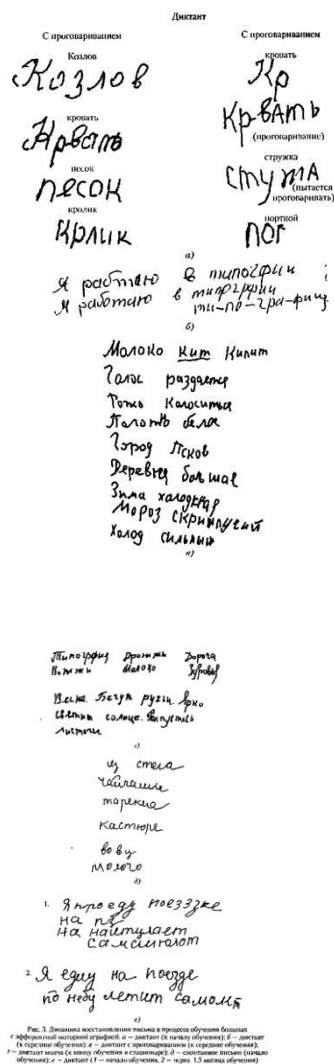 Диктант
С проговариванием С проговариванием
Козлов кровать
Козлов Кр
кровать Крвать
Крвать (проговаривание)
песок стружка
песок стужа
(пытается проговаривать)
кролик портной
крлик пог
а)
Я работаю в типогфии
Я работаю в типгрфии
ти-по-гра-фии
б)
Молоко кит кипит
Голос раздается
Рожь колоситься
Полотно бела
Город Псков
Деревня большая
Зима холодная
Мороз скрипучий
Холод сильный
в)
Типогрфия Дрожжи Дорога
Вожжи Молоко Зуровар
Весна. Бегут ручьи. Ярко
светит солнце.
листочки
г)
из стега
чайашие
тарекиа
кастюре
вову
молого
д)
1. Я проеду поеззке
на пз
на наитулает
самсиголот
2. Я еду на поезде
по небу летит самолт
е)
Рис. 3. Динамика восстановления письма в процессе обучения больных
с эфферентной моторной аграфией: а — диктант (к началу обучения); б — диктант
(к середине обучения); в — диктант с проговариванием (к середине обучения);
г — диктант молча (к концу обучения в стационаре); д — спонтанное письмо (начало
обучения); е — диктант (1 — начало обучения, 2 — через 1,5 месяца обучения)